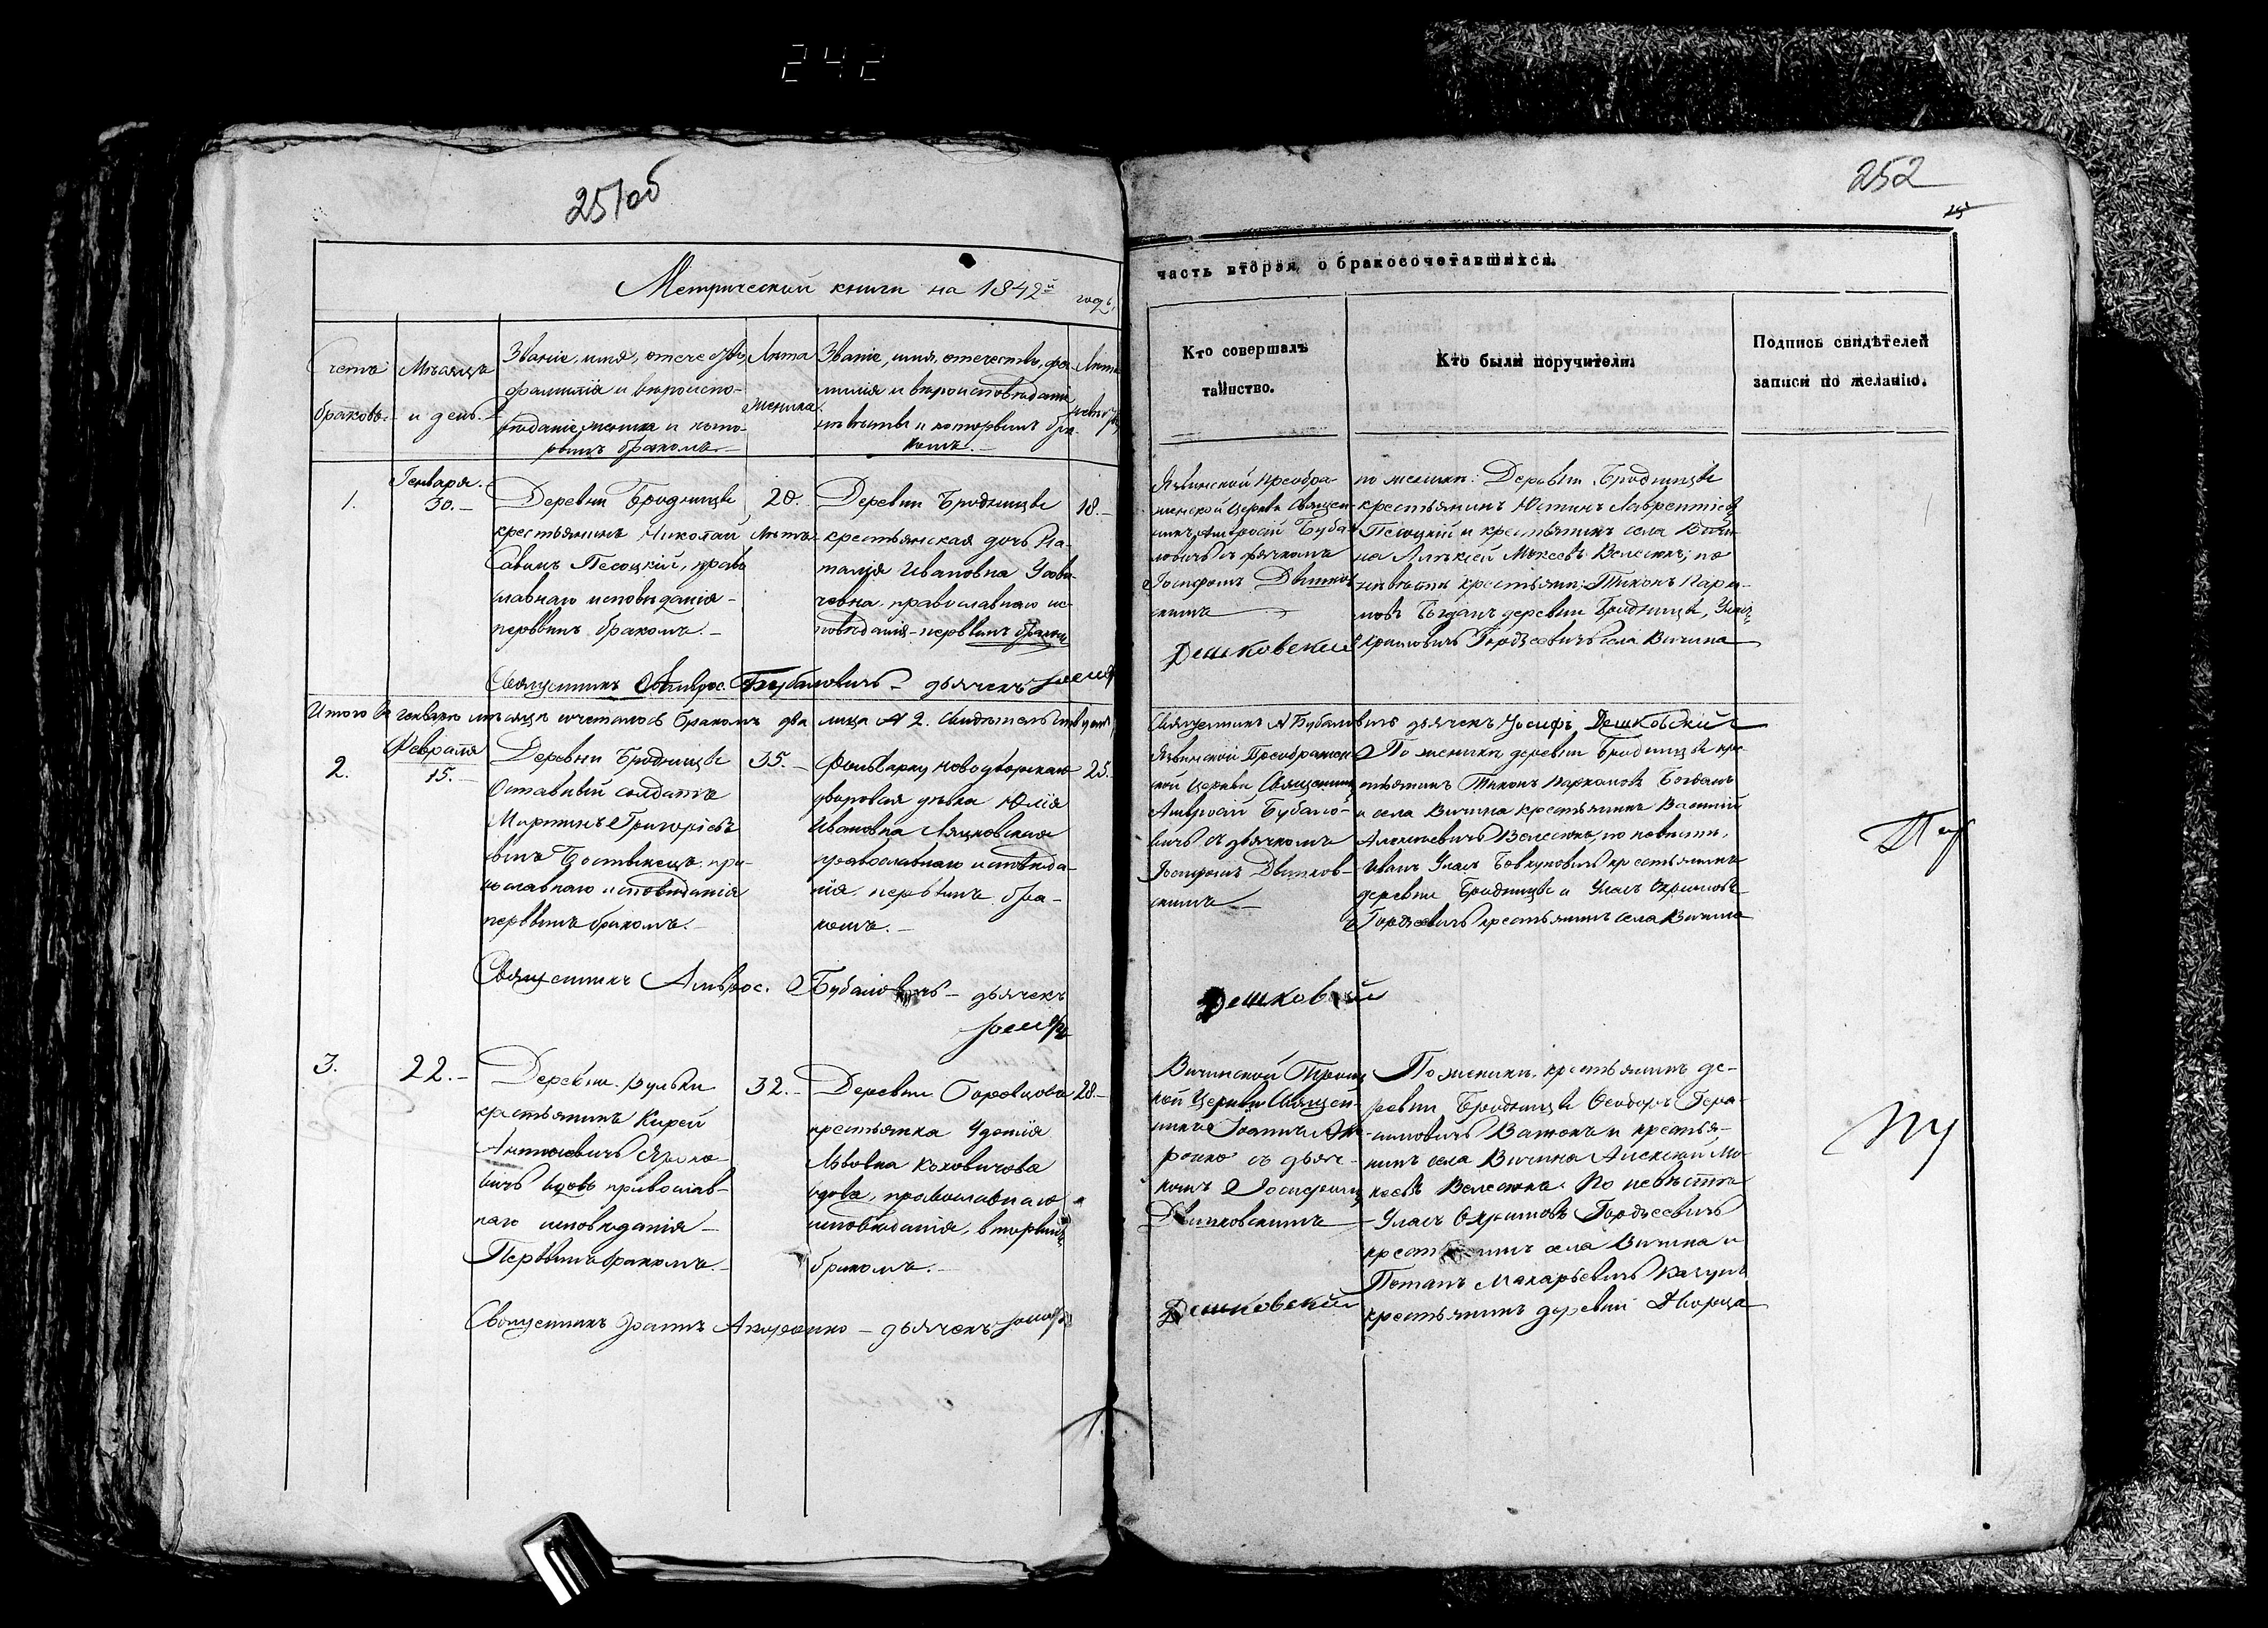 242
251об
252
Метрической книги на 1842й годъ,
часть вторая, о бракосочетавшихся.
Счетъ
браковъ.
Мѣсяцъ
и день.
Званіе, имя, отечество,
фамилія и вѣроиспо-
вѣданіе жениха и кото-
рымъ бракомъ.
Лѣта
жениха.
Званіе, имя, отечество, фа-
милія и вѣроисповѣданіе
невѣсты и которымъ бра-
комъ.
Лѣта
невѣсты
Кто совершалъ
таинство.
Кто были поручители.
Подпись свидѣтелей
записи по желанію.
1.
Генваря.
30.
Деревни Бродницы
крестьянинъ Николай
Савинъ Песоцкій, право
славнаго исповѣданія
первымъ бракомъ.
20.
Лѣтъ
Деревни Бродницы
крестьянская дочь На-
талія Ивановна
православнаго ис-
повѣданія первымъ бракомъ
18.
Священникъ Амврос. Бубаловичъ - дьячекъ Іосифъ
Преобра
женской Церкви Священ-
никъ Амвросій Буба-
ловичъ съ дьячкомъ
Іосифомъ
скимъ
Дешковскій
по жених: Деревни Бродницы
крестьянинъ Юстинъ Лаврентіевъ
Песоцкій и крестьянинъ села Вичи-
на Алексѣй Мокеевъ Велесюкъ; по
невѣстѣ крестьяни: Тихонъ Парха-
мовъ Богданъ деревни Бродницы, Уласъ
Гордѣевичъ села Вичина
Итого въ генварѣ мѣсяцѣ сочеталось бракомъ два лица № 2. Свидѣтельствуемъ
Священникъ А Бубаловичъ дьячекъ Іосифъ Дешковскій
2.
Февраля
15.
Деревни Бродницы
Отставный солдатъ
Мартинъ Григорьевъ
сынъ пра-
вославнаго исповѣданія
первымъ бракомъ.
35.
Фольварку Новодворскаго
дворовая дѣвка Юлія
Ивановна Ляцковская
православнаго исповѣда-
нія, первымъ бра-
комъ.
25.
Священникъ Амврос. Бубаловичъ - дьячекъ
Іосифъ
Преображен-
ской Церкви Священникъ
Амвросій Бубало-
вичъ съ дьячкомъ
Іосифомъ
скимъ
Дешковскій
По женихѣ деревни Бродницы кре-
стьянинъ Тихонъ Пархамовъ Богданъ
и села Вичина крестьянинъ Василій
Алексѣевичъ Велесюкъ, по невѣстѣ,
Иванъ Уласъ крестьянинъ
деревни Бродницы и Уласъ Охримовъ
Гордѣевичъ крестьянинъ села Вичина
3.
22.
Деревни Вульки
крестьянинъ Кирей
Антоновичъ
вичъ вдовъ православ-
наго исповѣданія
Первымъ бракомъ.
32.
Деревни
крестьянка
Львовна Коховичова
вдова, православнаго
исповѣданія, вторымъ
бракомъ.
28.
Священникъ Іоаннъ - дьячекъ Іосифъ
Вичинской Троиц
кой Церкви Священ-
никъ Іоаннъ
съ дьяч-
комъ Іосифомъ
Дешковскій
По женихѣ, крестьянинъ де-
ревни Бродницы Ѳеодоръ Гера-
симовичъ и крестья-
нинъ села Вичина Алексѣй Мо-
кеевъ Велесюкъ. По невѣстѣ
Уласъ Охримовъ Гордѣевичъ
крестьянинъ села Вичина и
Потапъ Макарьевичъ
крестьянинъ деревни Дворца